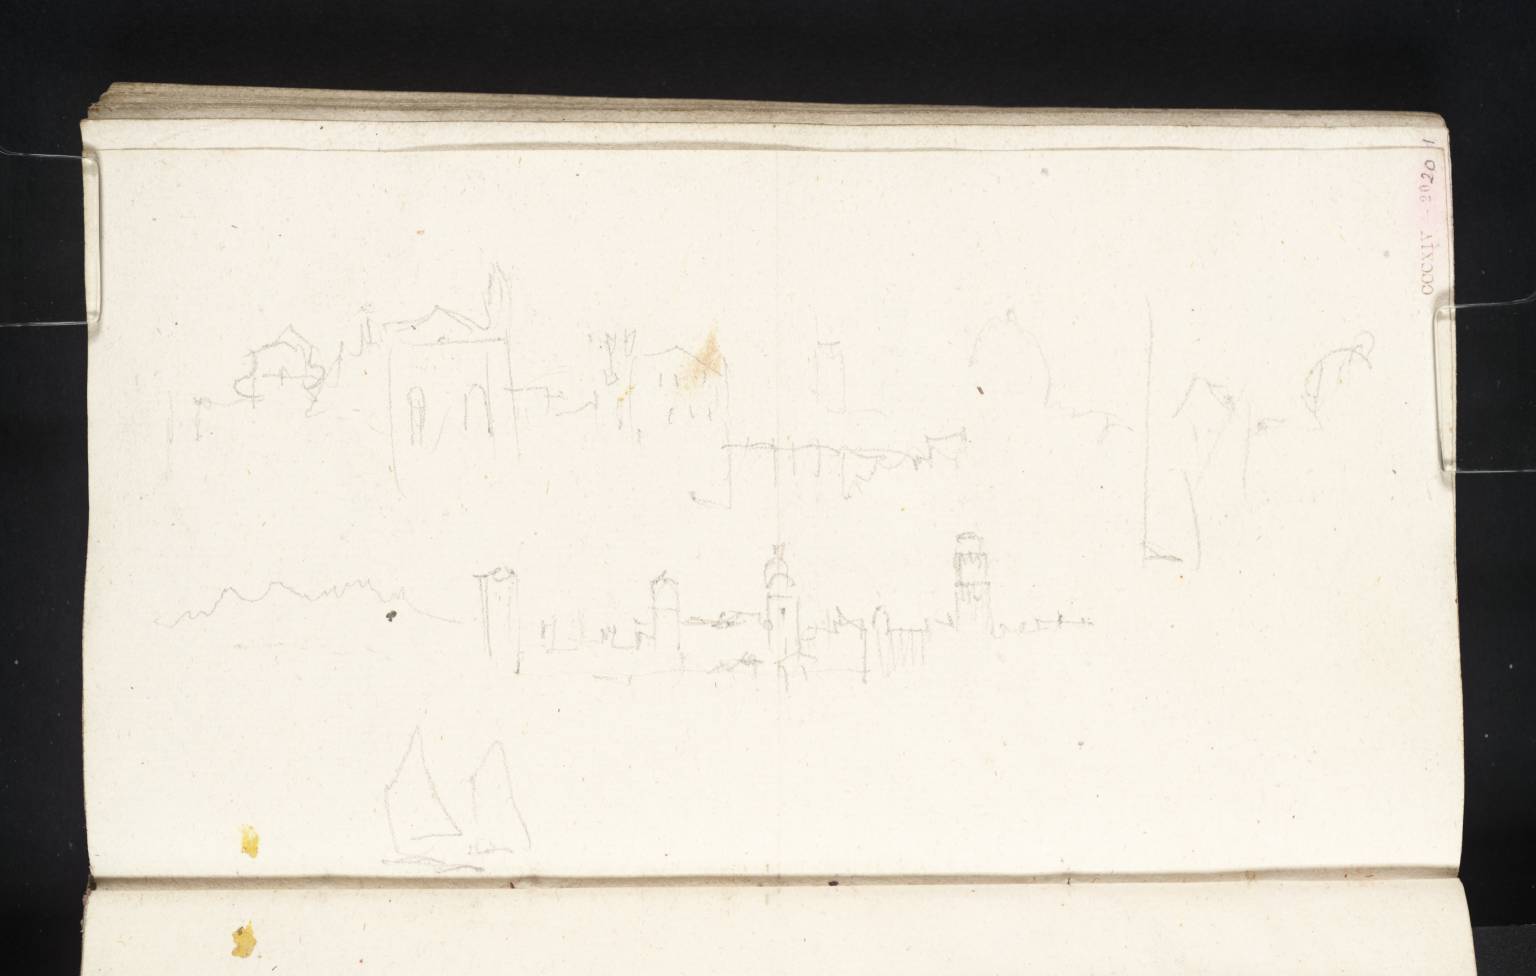 CCCXIV - 20
20
1